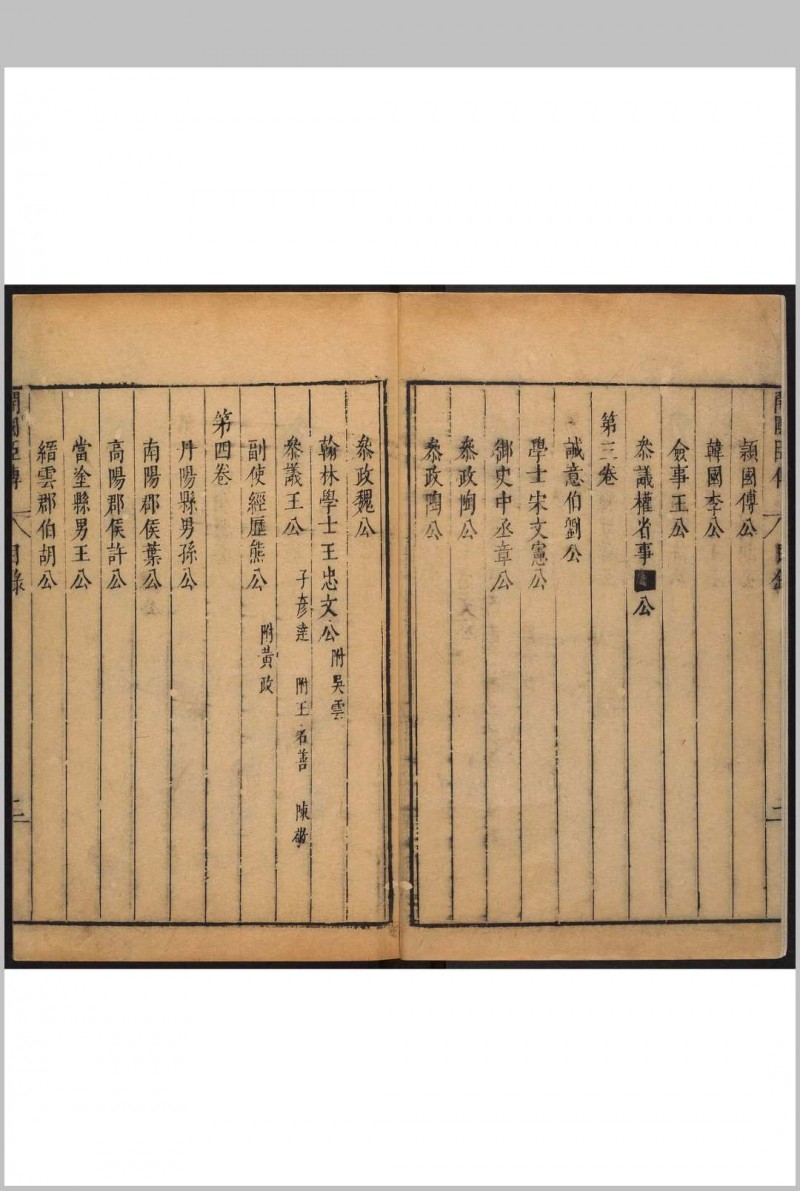 潁國傅公
韓國李公
僉事王公
叅議權省事公
第三卷
誠意伯劉公
學士宋文憲公
御史中丞章公
叅政陶公
叅政陶公
叅政魏公
翰林學士王忠文公 附吳雲
叅議王公 子彥達 附王名善 陳
副使經歷熊公 附黃政
第四卷
丹陽縣男孫公
南陽郡侯葉公
高陽郡侯許公
當塗縣男王公
縉雲郡伯胡公
開國臣傳 目錄 二